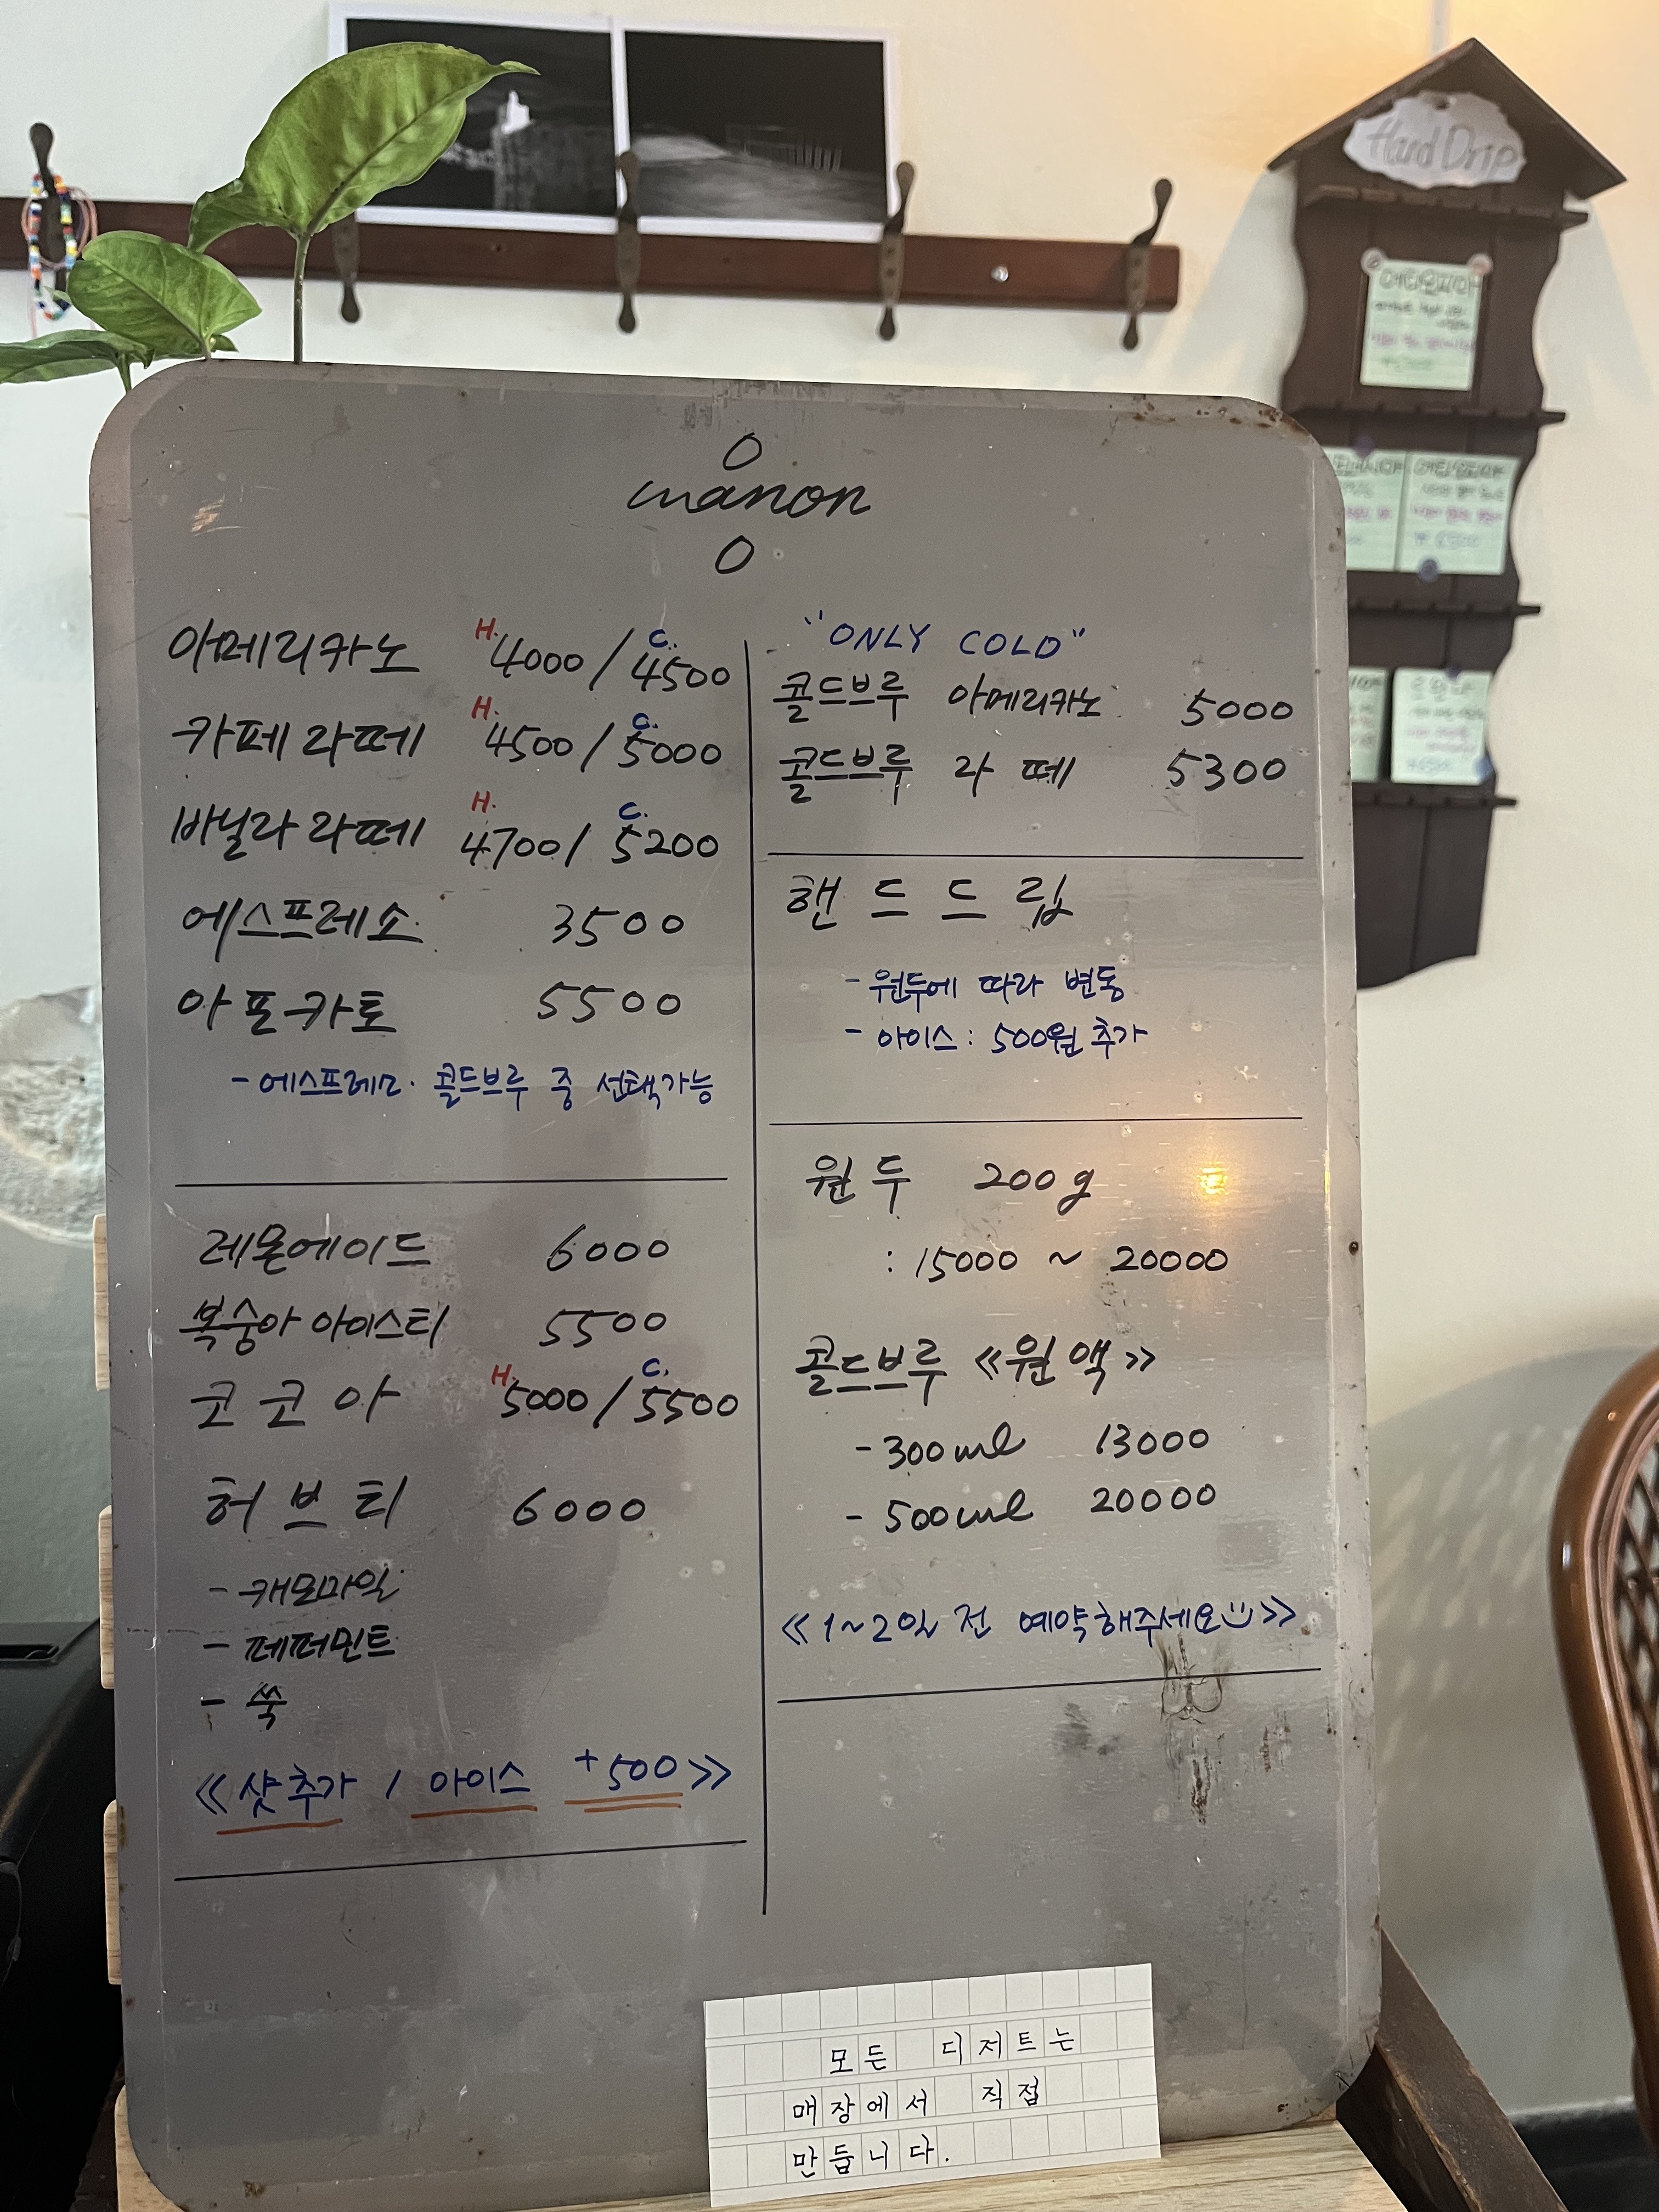 manon
아메리카노 H. 4000 / C. 4500
카페 라떼 H. 4500 / C. 5000
바닐라 라떼 H. 4700 / C. 5200
에스프레소 3500
아포카토 5500
- 에스프레소. 콜드브루 중 선택가능
레몬에이드 6000
복숭아 아이스티 5500
코코아 H. 5000 / C. 5500
허브티 6000
- 캐모마일
- 페퍼민트
- 쑥
《 샷추가 / 아이스 +500 》
"ONLY COLD"
콜드브루 아메리카노 5000
콜드브루 라떼 5300
핸드드립
- 원두에 따라 변동
- 아이스 : 500원 추가
원두 200g
: 15000 ~ 20000
콜드브루 《원액》
- 300ml 13000
- 500ml 20000
《 1~2일 전 예약해주세요 》
모든 디저트는
매장에서 직접
만듭니다.
Hand Drip